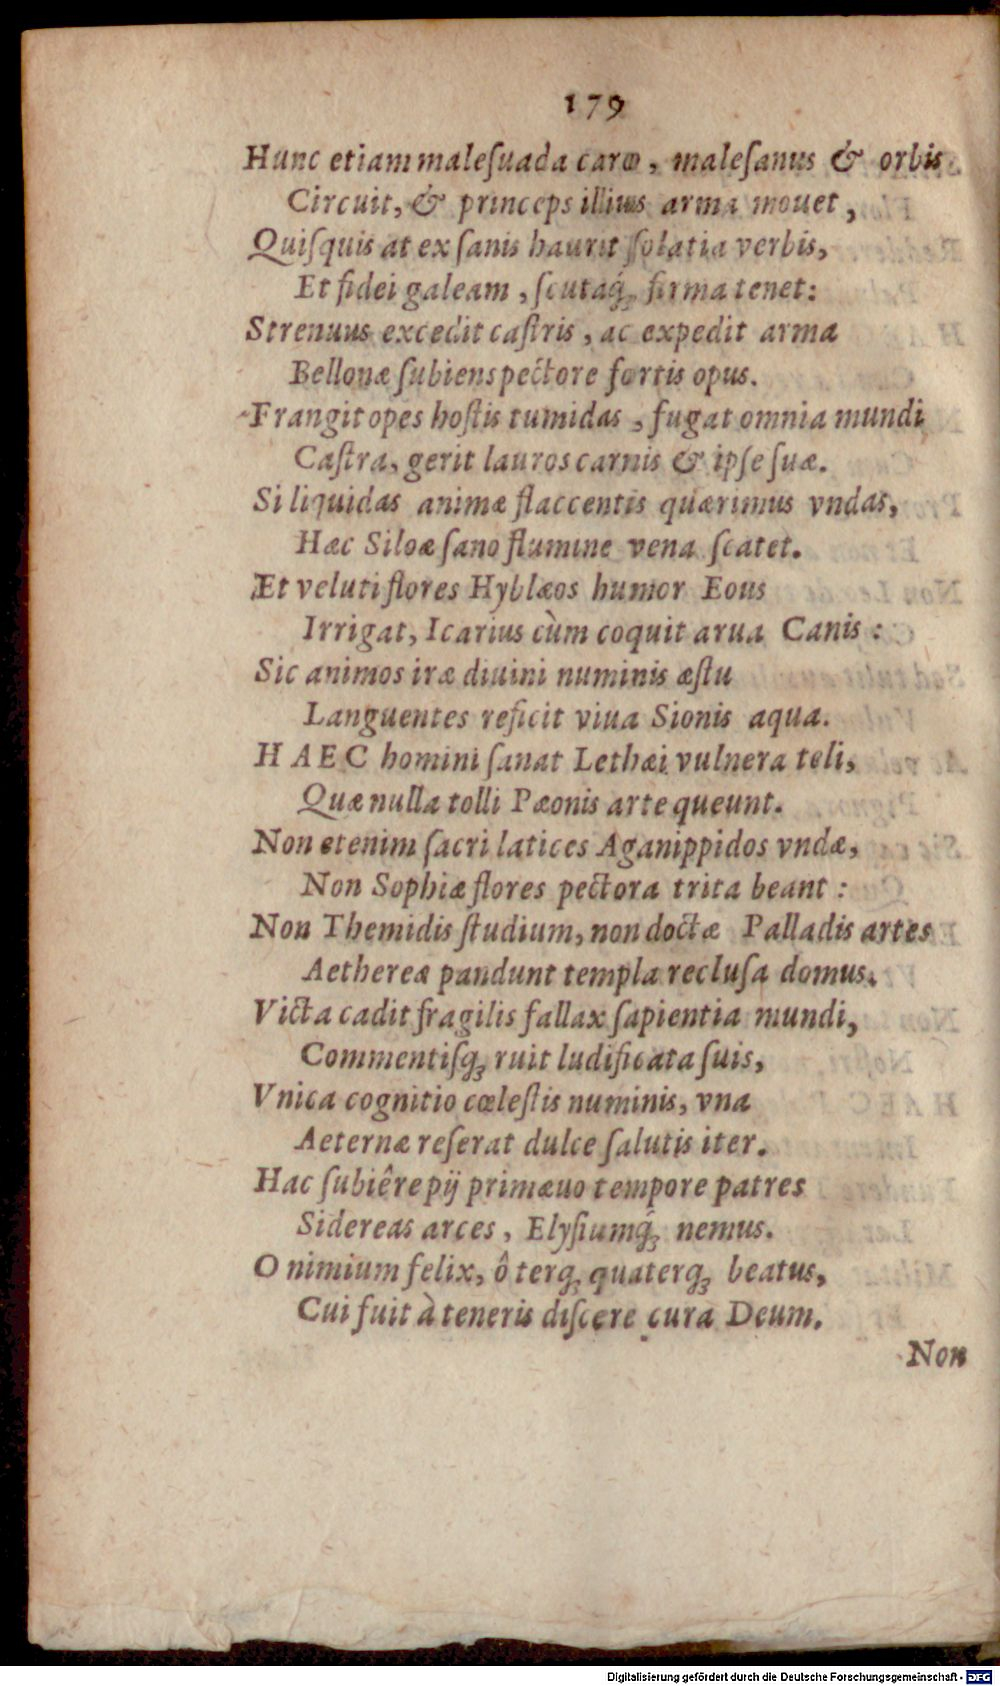 179
Hunc etiam maleſuada caro, maleſanus & orbis
Circuit, & princeps illius arma mouet,
Quiſquis at ex ſanis haurit ſolatia verbis,
Et fidei galeam, ſcutaq́ꝫ firma tenet:
Strenuus excedit caſtris, ac expedit arma
Bellonæ ſubiens pectore fortis opus.
Frangit opes hoſtis tumidas, fugat omnia mundi
Caſtra, gerit lauros carnis & ipſe ſuæ.
Si liquidas animæ flaccentis quærimus vndas,
Hæc Siloæ ſano flumine vena ſcatet.
Et veluti flores Hyblæos humor Eous
Irrigat, Icarius cùm coquit arua Canis:
Sic animos iræ diuini numinis æſtu
Languentes reficit viua Sionis aqua.
HAEC homini ſanat Lethæi vulnera teli,
Quæ nulla tolli Pæonis arte queunt.
Non etenim ſacri latices Aganippidos vndæ,
Non Sophiæ flores pectora trita beant:
Non Themidis ſtudium, non doctæ Palladis artes
Aethereæ pandunt templa recluſa domus.
Victa cadit fragilis fallax ſapientia mundi,
Commentiſqꝫ ruit ludificata ſuis,
Vnica cognitio cœleſtis numinis, vna
Aeternæ reſerat dulce ſalutis iter.
Hac ſubiêre pij primæuo tempore patres
Sidereas arces, Elyſiumq́ꝫ nemus.
O nimium felix, ô terqꝫ quaterqꝫ beatus,
Cui fuit à teneris diſcere cura Deum.
Non
Digitalisierung gefördert durch die Deutsche Forschungsgemeinschaft - DFG